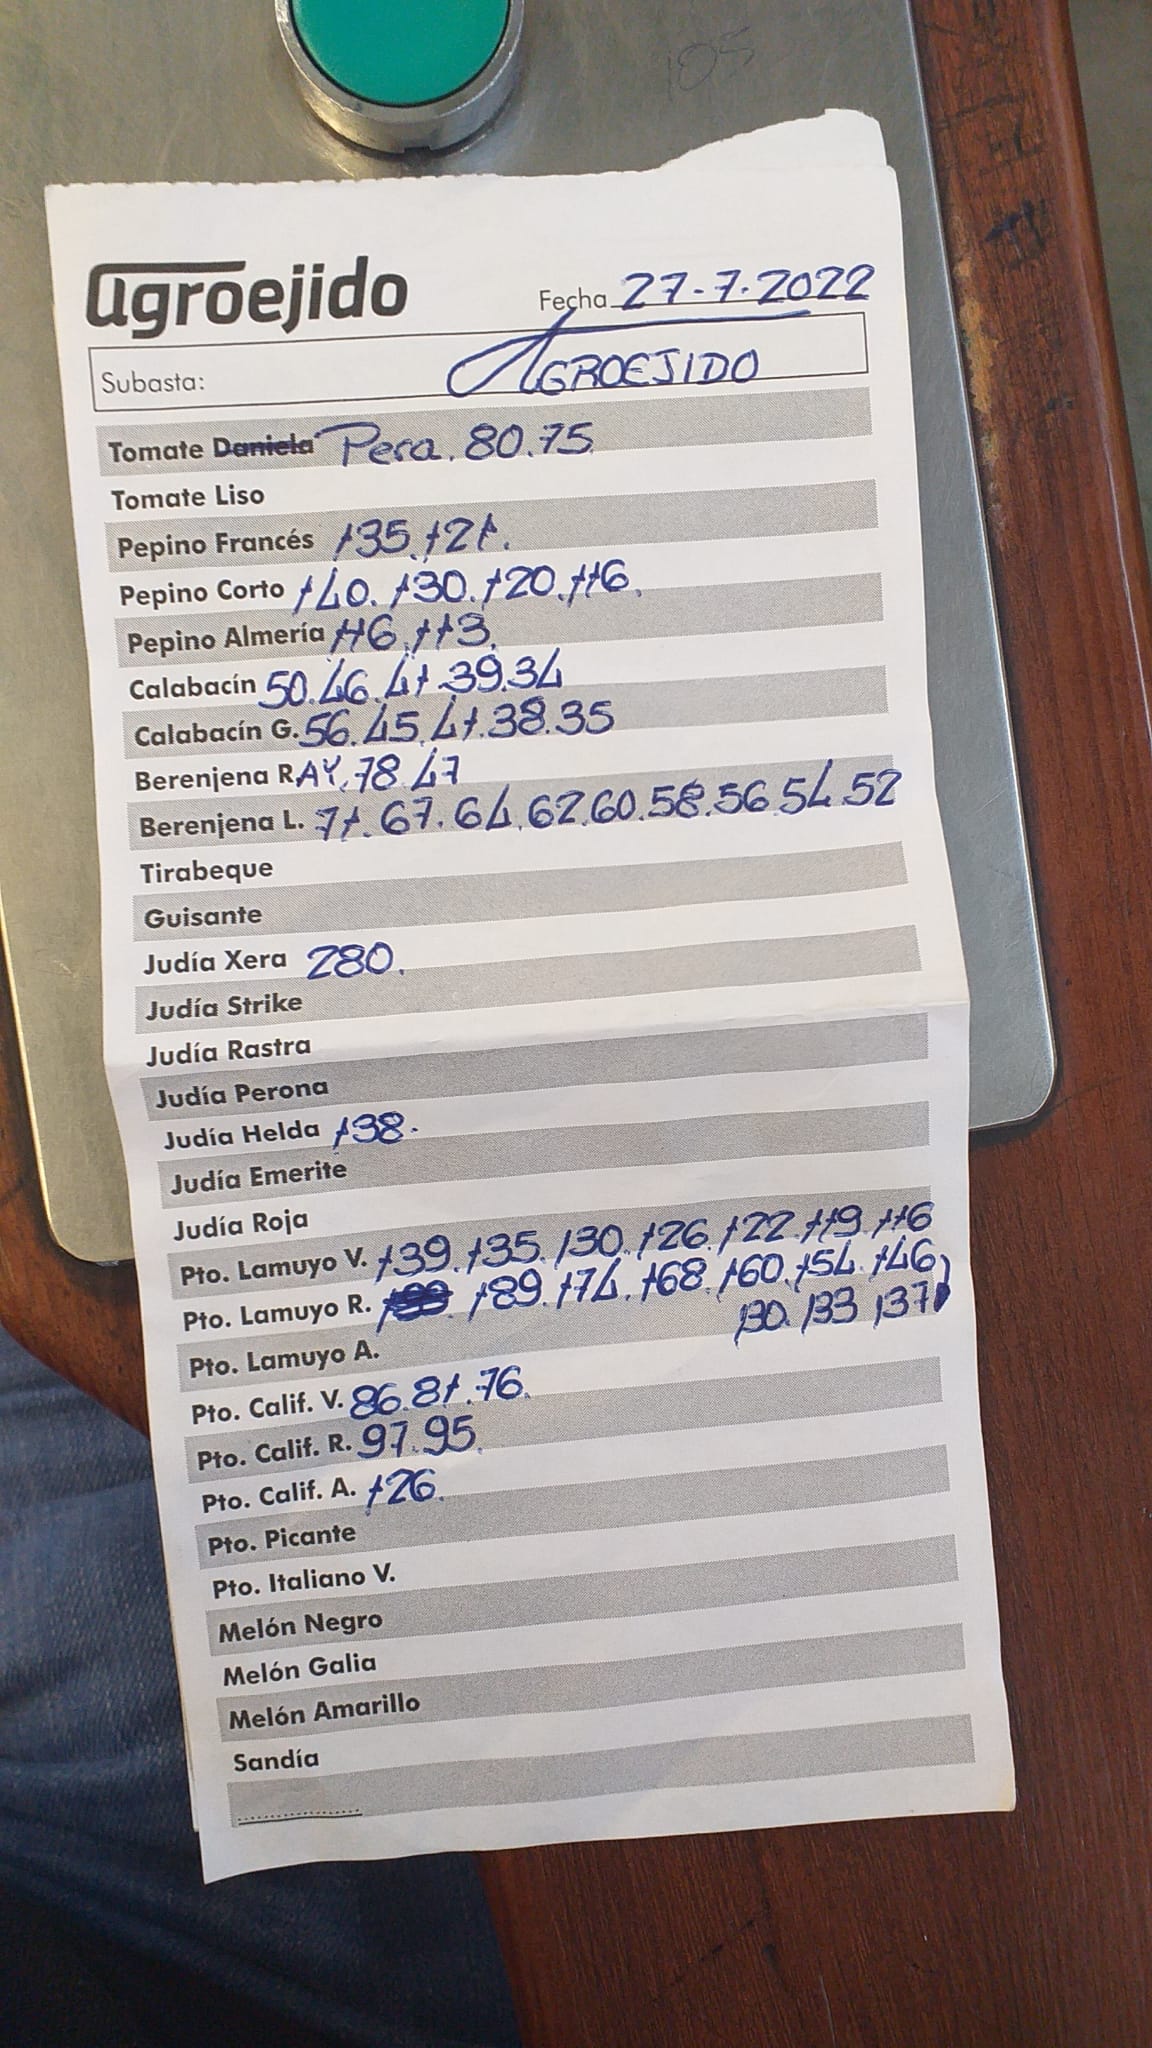 agroejido
Fecha 27-7-2022
Subasta: AGROEJIDO
Tomate Daniela Pera. 80.75
Tomate Liso
Pepino Francés 135.121.
Pepino Corto 140.130.120.116.
Pepino Almería 116.113.
Calabacín 50.46.41.39.34
Calabacín G. 56.45.41.38.35
Berenjena RAY.78.47
Berenjena L. 71.67.64.62.60.58.56.54.52
Tirabeque
Guisante
Judía Xera 280.
Judía Strike
Judía Rastra
Judía Perona
Judía Helda 138.
Judía Emerite
Judía Roja
Pto. Lamuyo V. 139.135.130.126.122.119.116
Pto. Lamuyo R. 189.174.168.160.154.146)
130.133 137
Pto. Lamuyo A.
Pto. Calif. V. 86.81.76.
Pto. Calif. R. 97.95.
Pto. Calif. A. 126.
Pto. Picante
Pto. Italiano V.
Melón Negro
Melón Galia
Melón Amarillo
Sandía